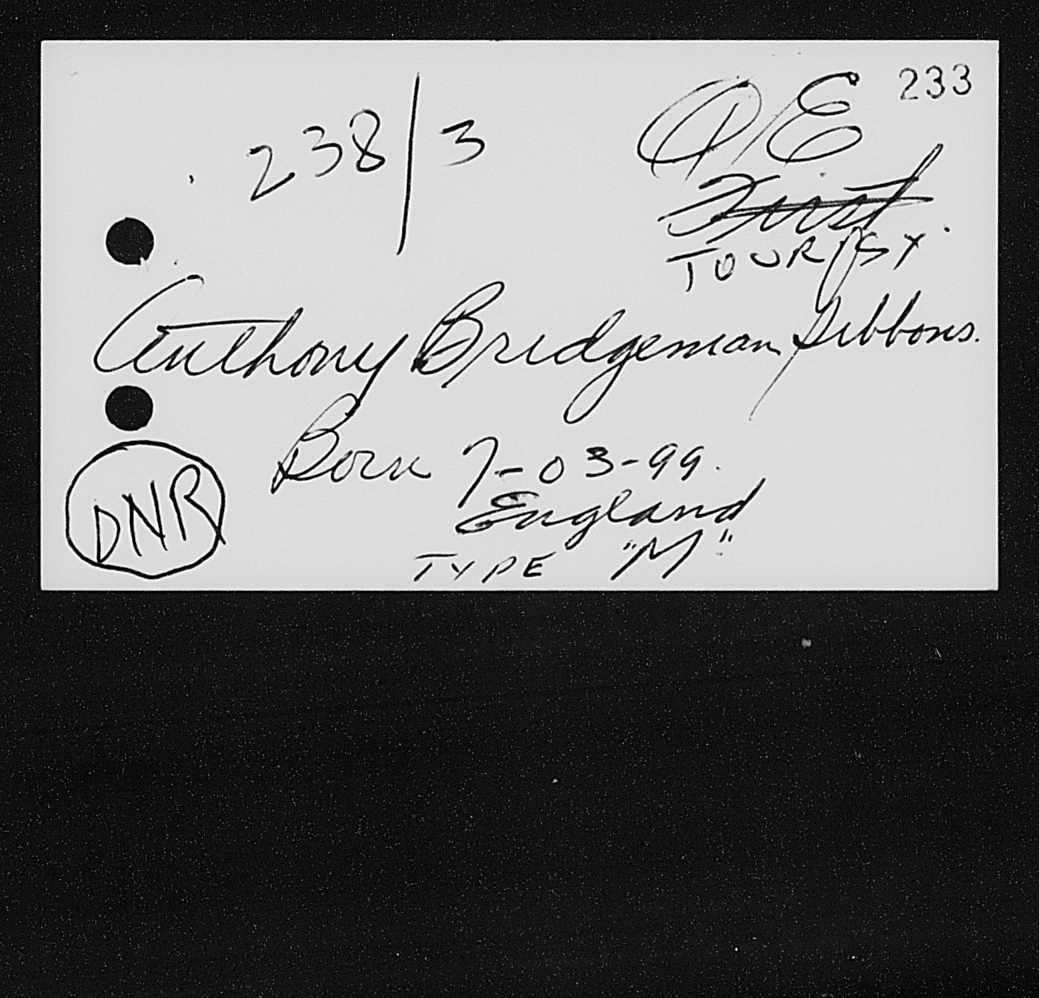 233
238/3
O/E
First
TOURIST
Anthony Bridgeman Gibbons.
Born 7-03-99.
England
TYPE "M"
DNR